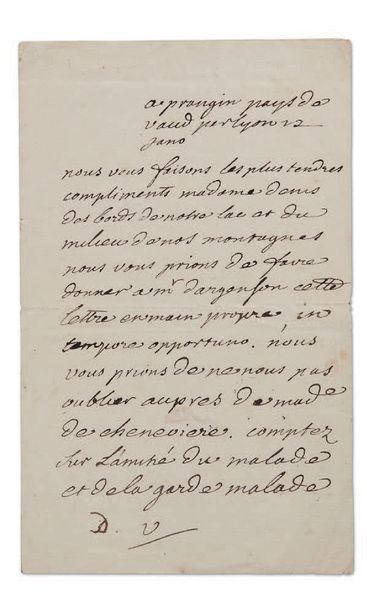 a prangin pays de
vaud par lyon 12
janv
nous vous faisons les plus tendres
compliments madame denis
des bords de notre lac et du
milieu de nos montagnes
nous vous prions de faire
donner a mr dargenson cette
lettre en main propre in
tempore opportuno. nous
vous prions de ne nous pas
oublier aupres de made
de cheneviere. comptez
sur Lamitié du malade
et de la garde malade
D. V